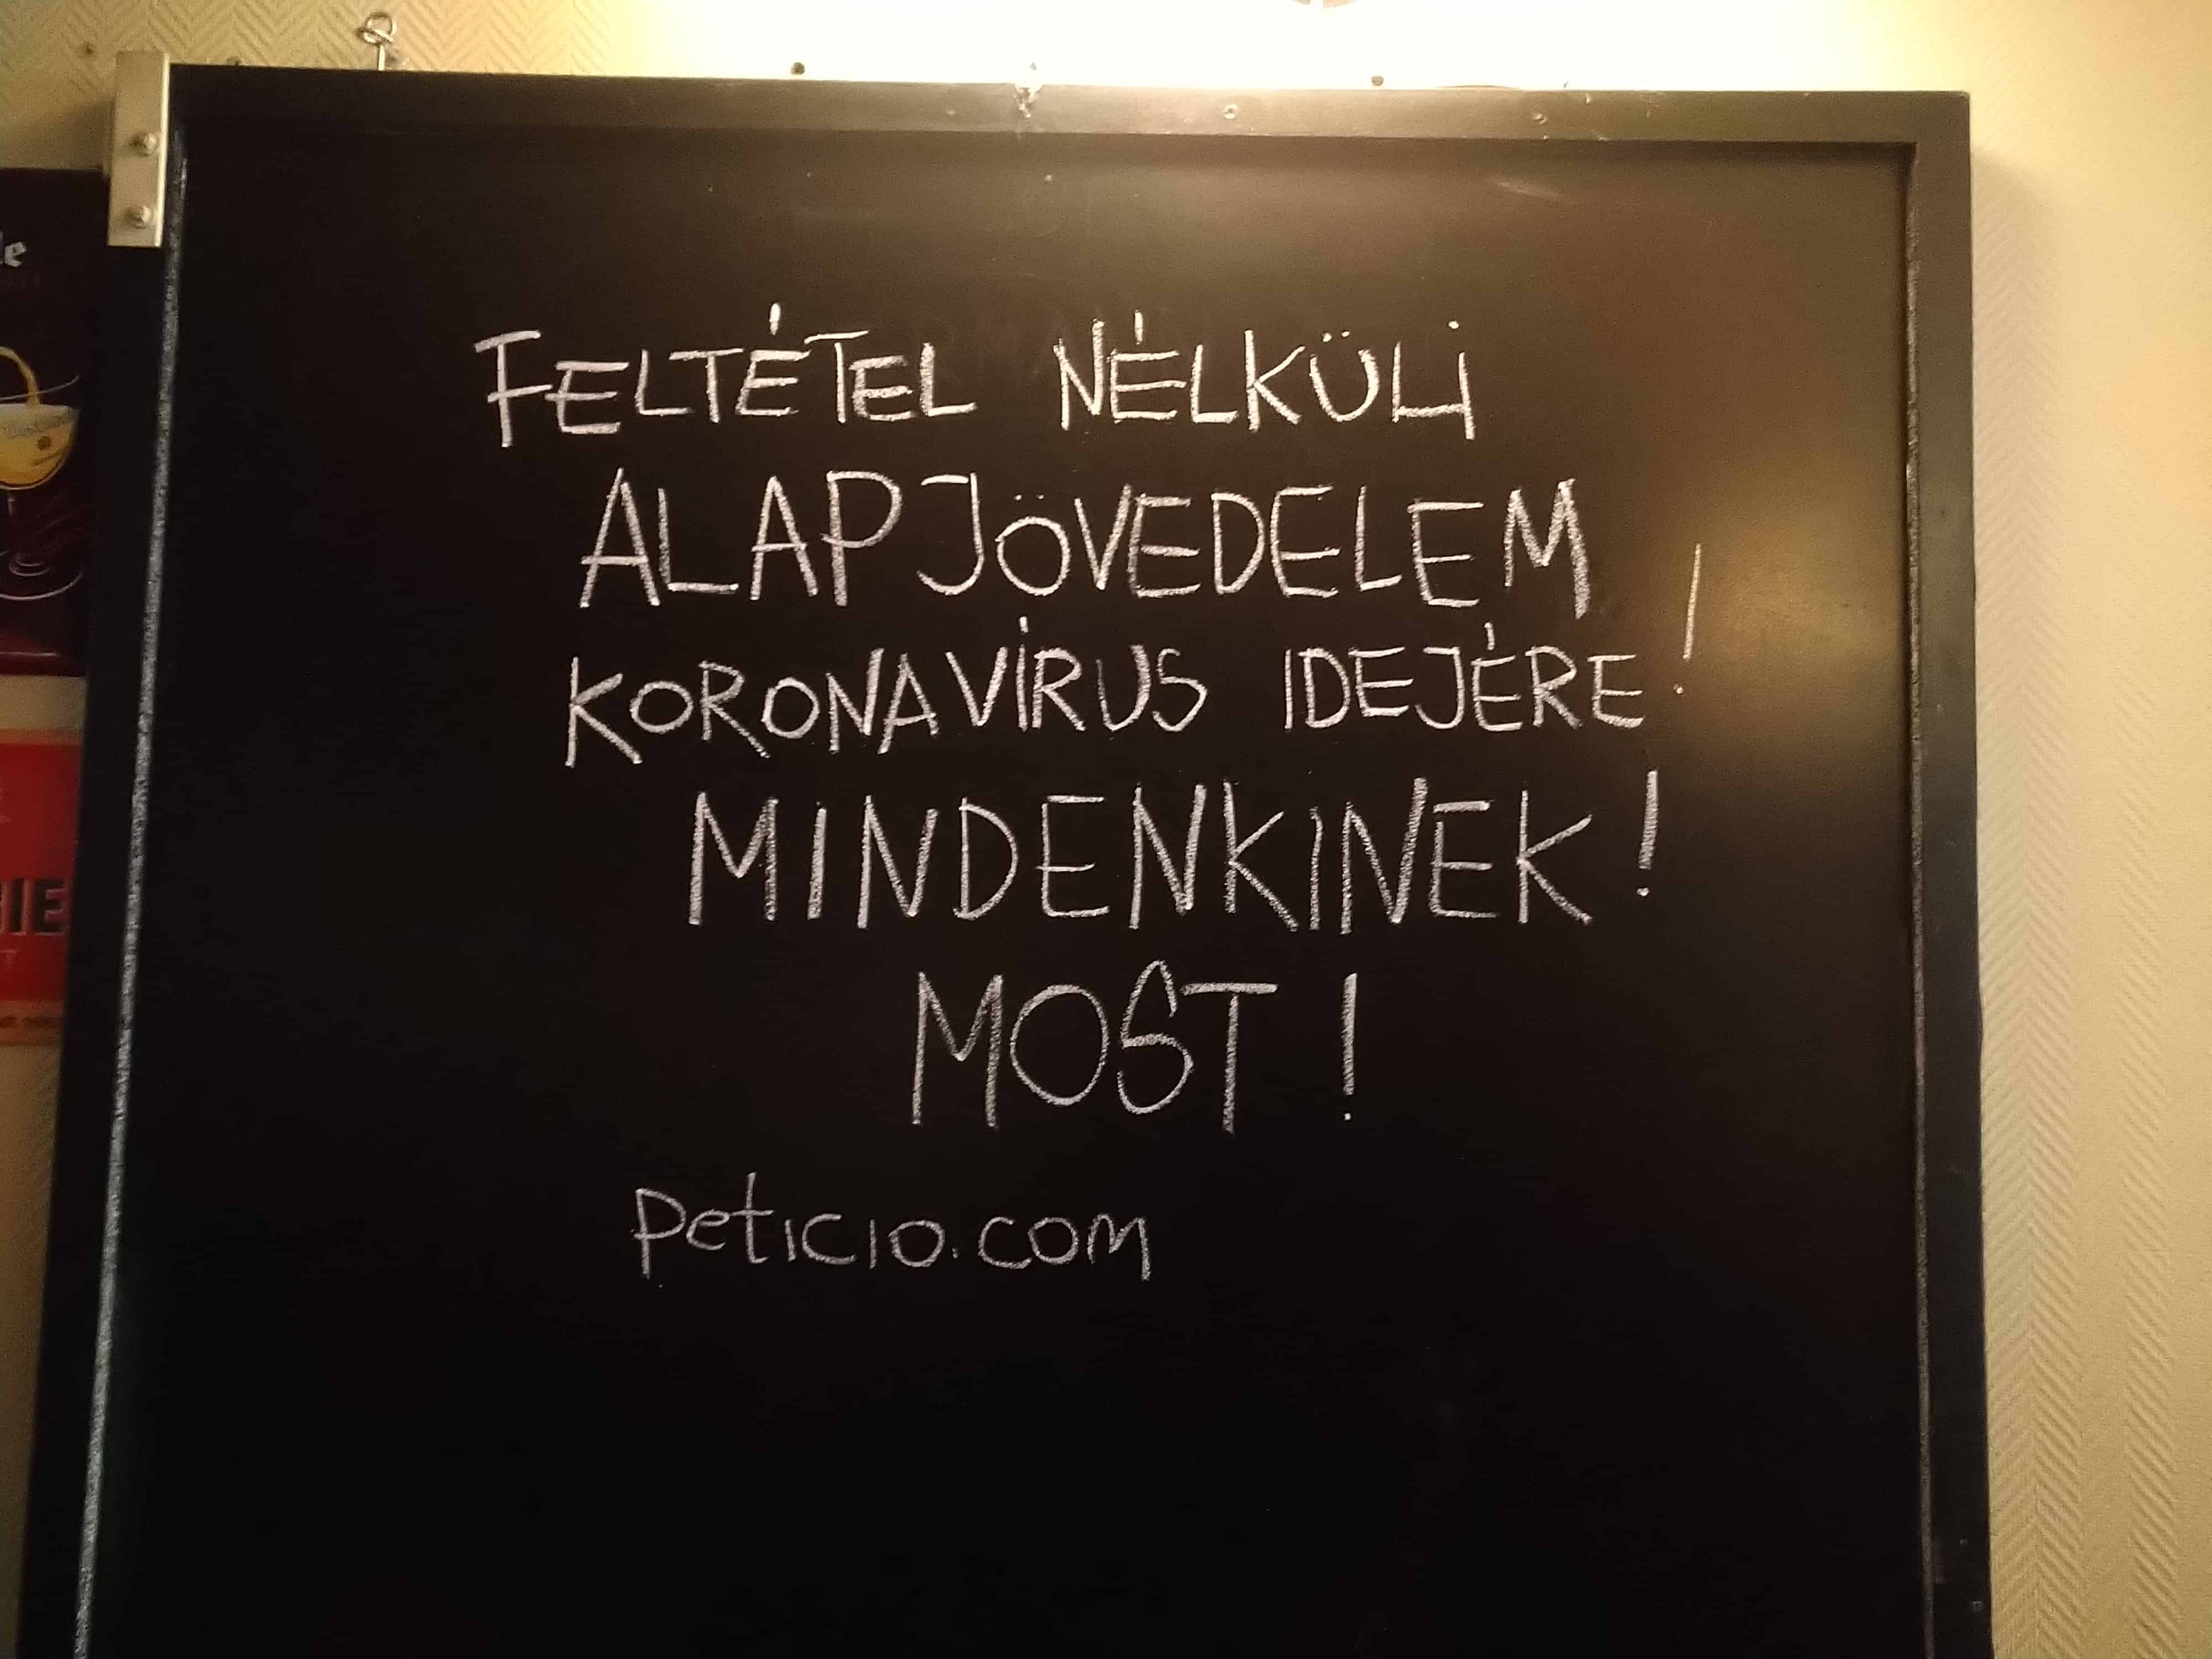 FELTÉTEL NÉLKÜLi
ALAPJÖVEDELEM
KORONAVÍRUS IDEJÉRE!
MINDENKINEK!
MOST!
peticio.com